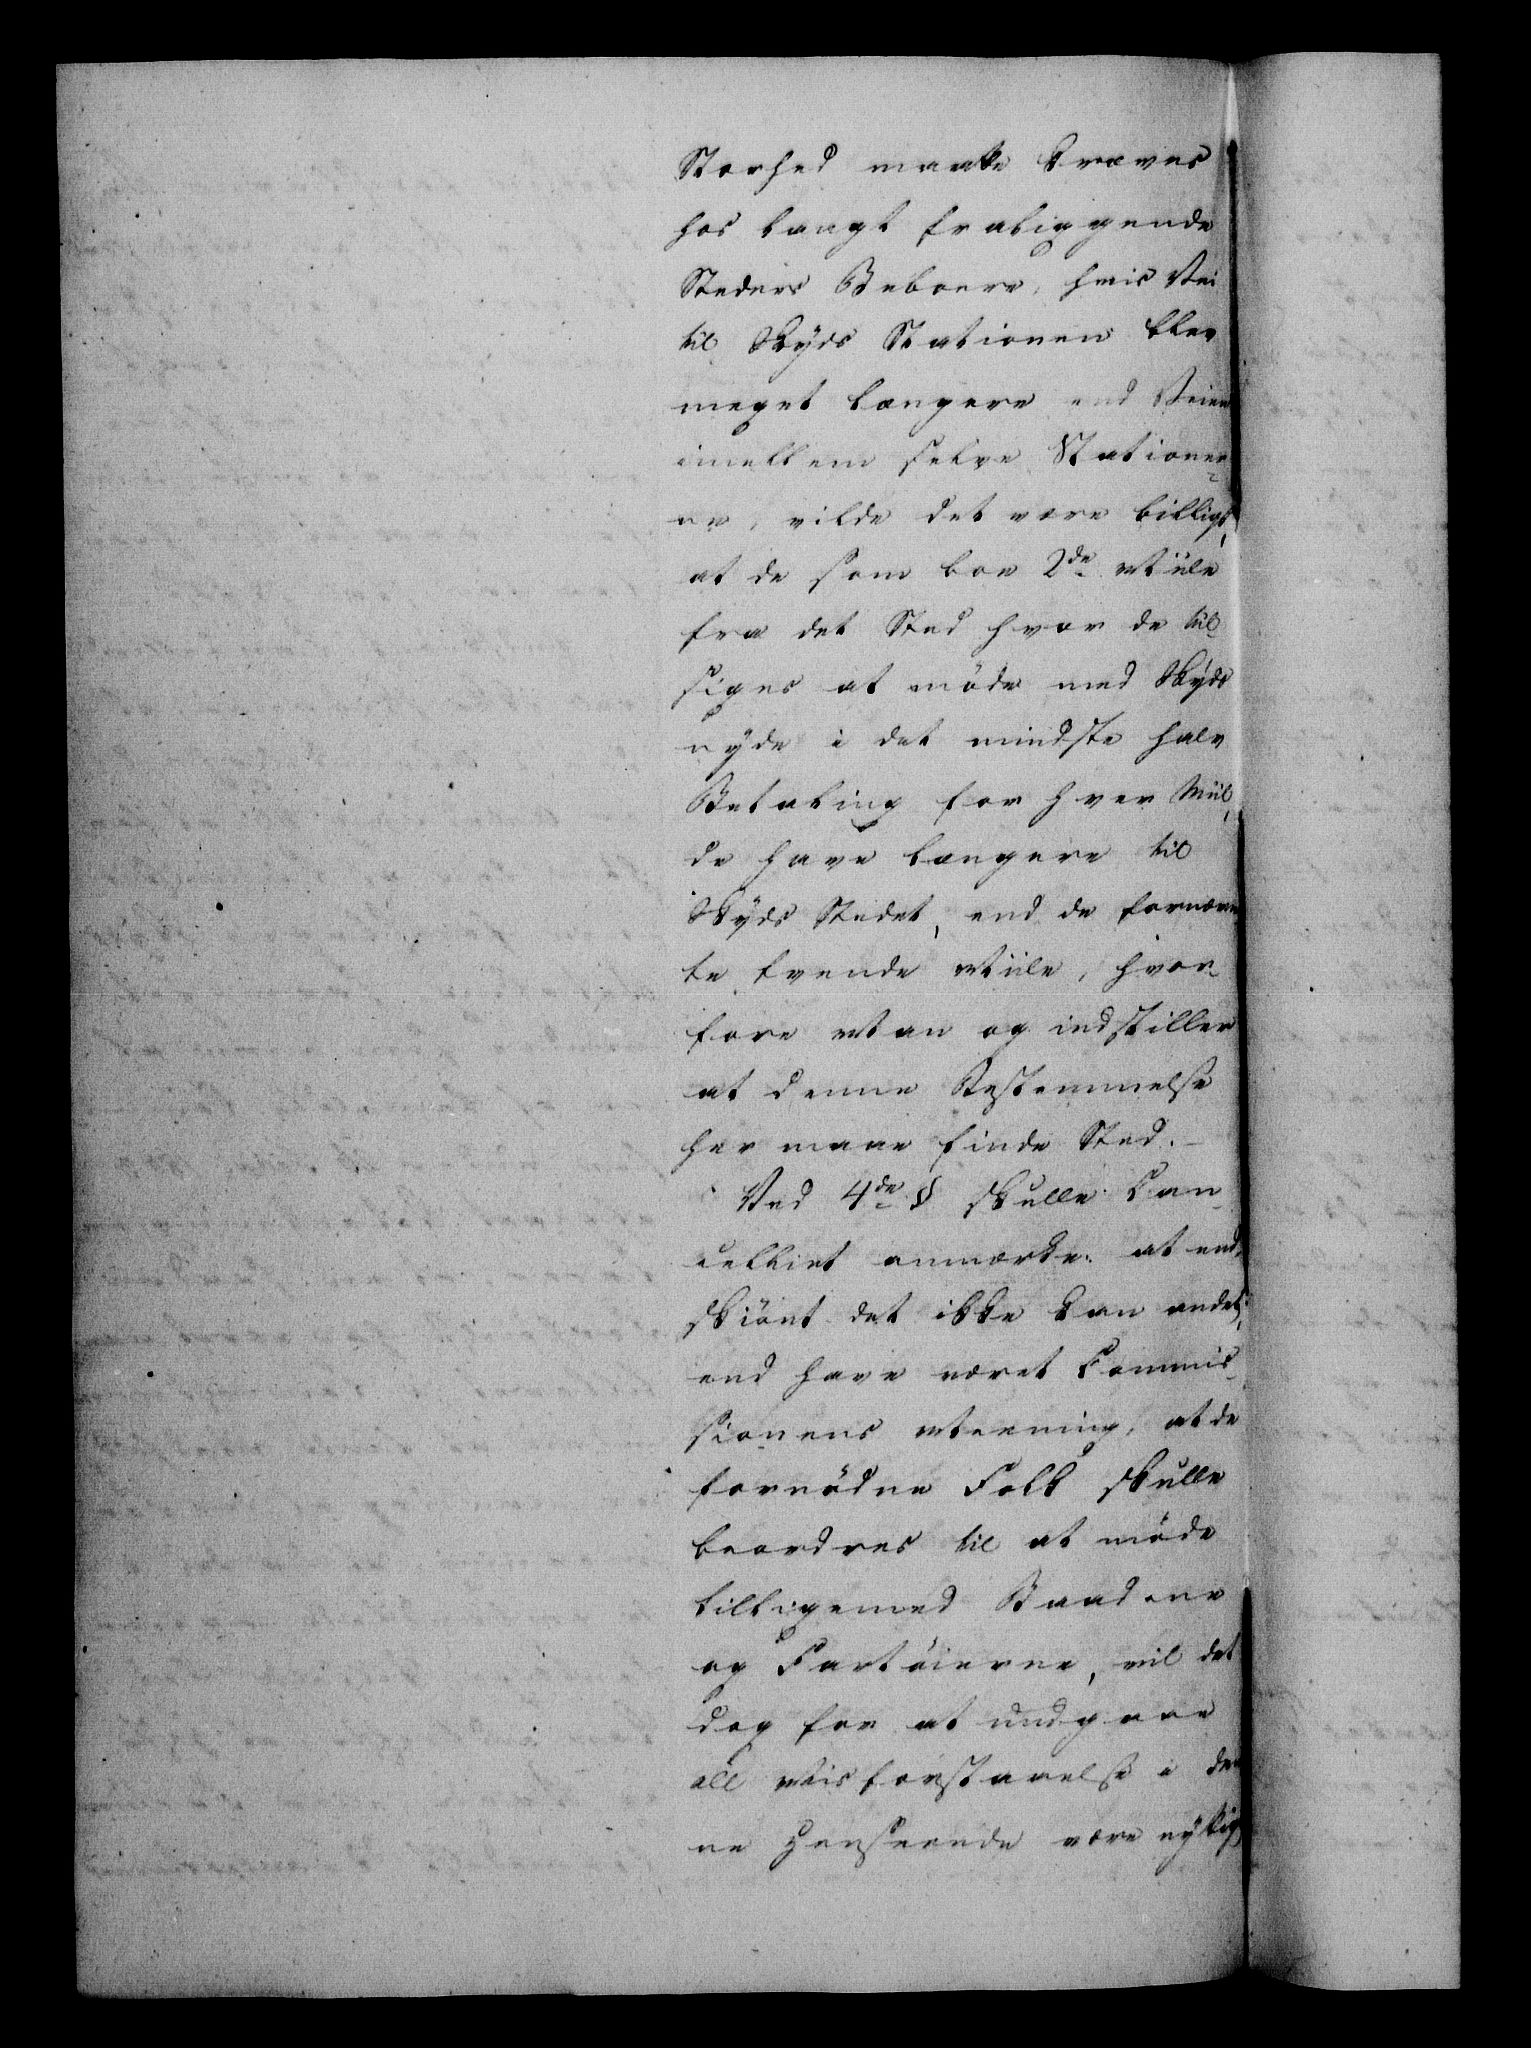 Storhed maatte kræves
hos langt fraliggende
Steders Beboere, hvis Vei
til Skyds Stationen blev
meget længere end Veien
imellem selve Stationer-
ne, vilde det være billigt,
at de som boe 2de Miile
fra det Sted hvor de til-
siges at möde med Skyds
nyde i det mindste halv
Betaling for hver Miil,
de have længere til
Skyds Stedet, end de fornævn
te tvende Miile, hvor-
fore Man og indstiller
at denne Bestemmelse
her maae finde Sted. –
Ved 4de § skulle Can-
celliet anmærke: at end-
skiönt det ikke kan andet,
end have været Commis-
sionens Meening, at de
fornödne Folk skulle
beordres til at möde
tilligemed Baadene
og Fartöierne, vil det
dog for at undgaae
all Misforstaaelse i den
ne Henseende være nyttig